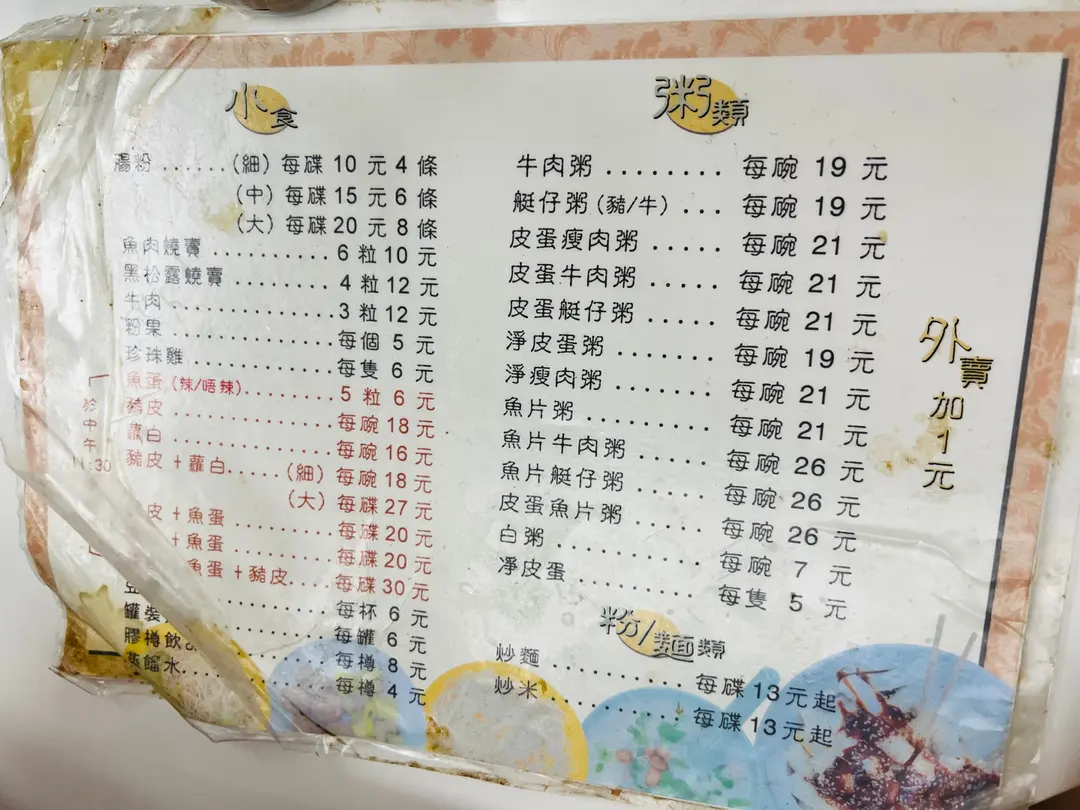 小食
腸粉......(細) 每碟 10 元 4 條
(中) 每碟 15 元 6 條
(大) 每碟 20 元 8 條
魚肉燒賣..........6 粒 10 元
黑松露燒賣........4 粒 12 元
牛肉.............3 粒 12 元
粉果.............每個 5 元
珍珠雞...........每隻 6 元
魚蛋 (辣/唔辣)........5 粒 6 元
豬皮.............每碗 18 元
蘿白.............每碗 16 元
豬皮+蘿白.....(細) 每碗 18 元
(大) 每碟 27 元
皮+魚蛋.........每碟 20 元
+魚蛋.........每碟 20 元
魚蛋+豬皮....每碟 30 元
每杯 6 元
罐裝 每罐 6 元
膠樽飲 每樽 8 元
蒸餾水...........每樽 4 元
中午
11:30
粥類
牛肉粥........每碗 19 元
艇仔粥 (豬/牛)...每碗 19 元
皮蛋瘦肉粥.....每碗 21 元
皮蛋牛肉粥.....每碗 21 元
皮蛋艇仔粥.....每碗 21 元
淨皮蛋粥.......每碗 19 元
淨瘦肉粥.......每碗 21 元
魚片粥........每碗 21 元
魚片牛肉粥.....每碗 26 元
魚片艇仔粥.....每碗 26 元
皮蛋魚片粥.....每碗 26 元
白粥..........每碗 7 元
淨皮蛋........每隻 5 元
粉/麵類
炒麵..........每碟 13元起
炒米..........每碟 13元起
外賣加1元